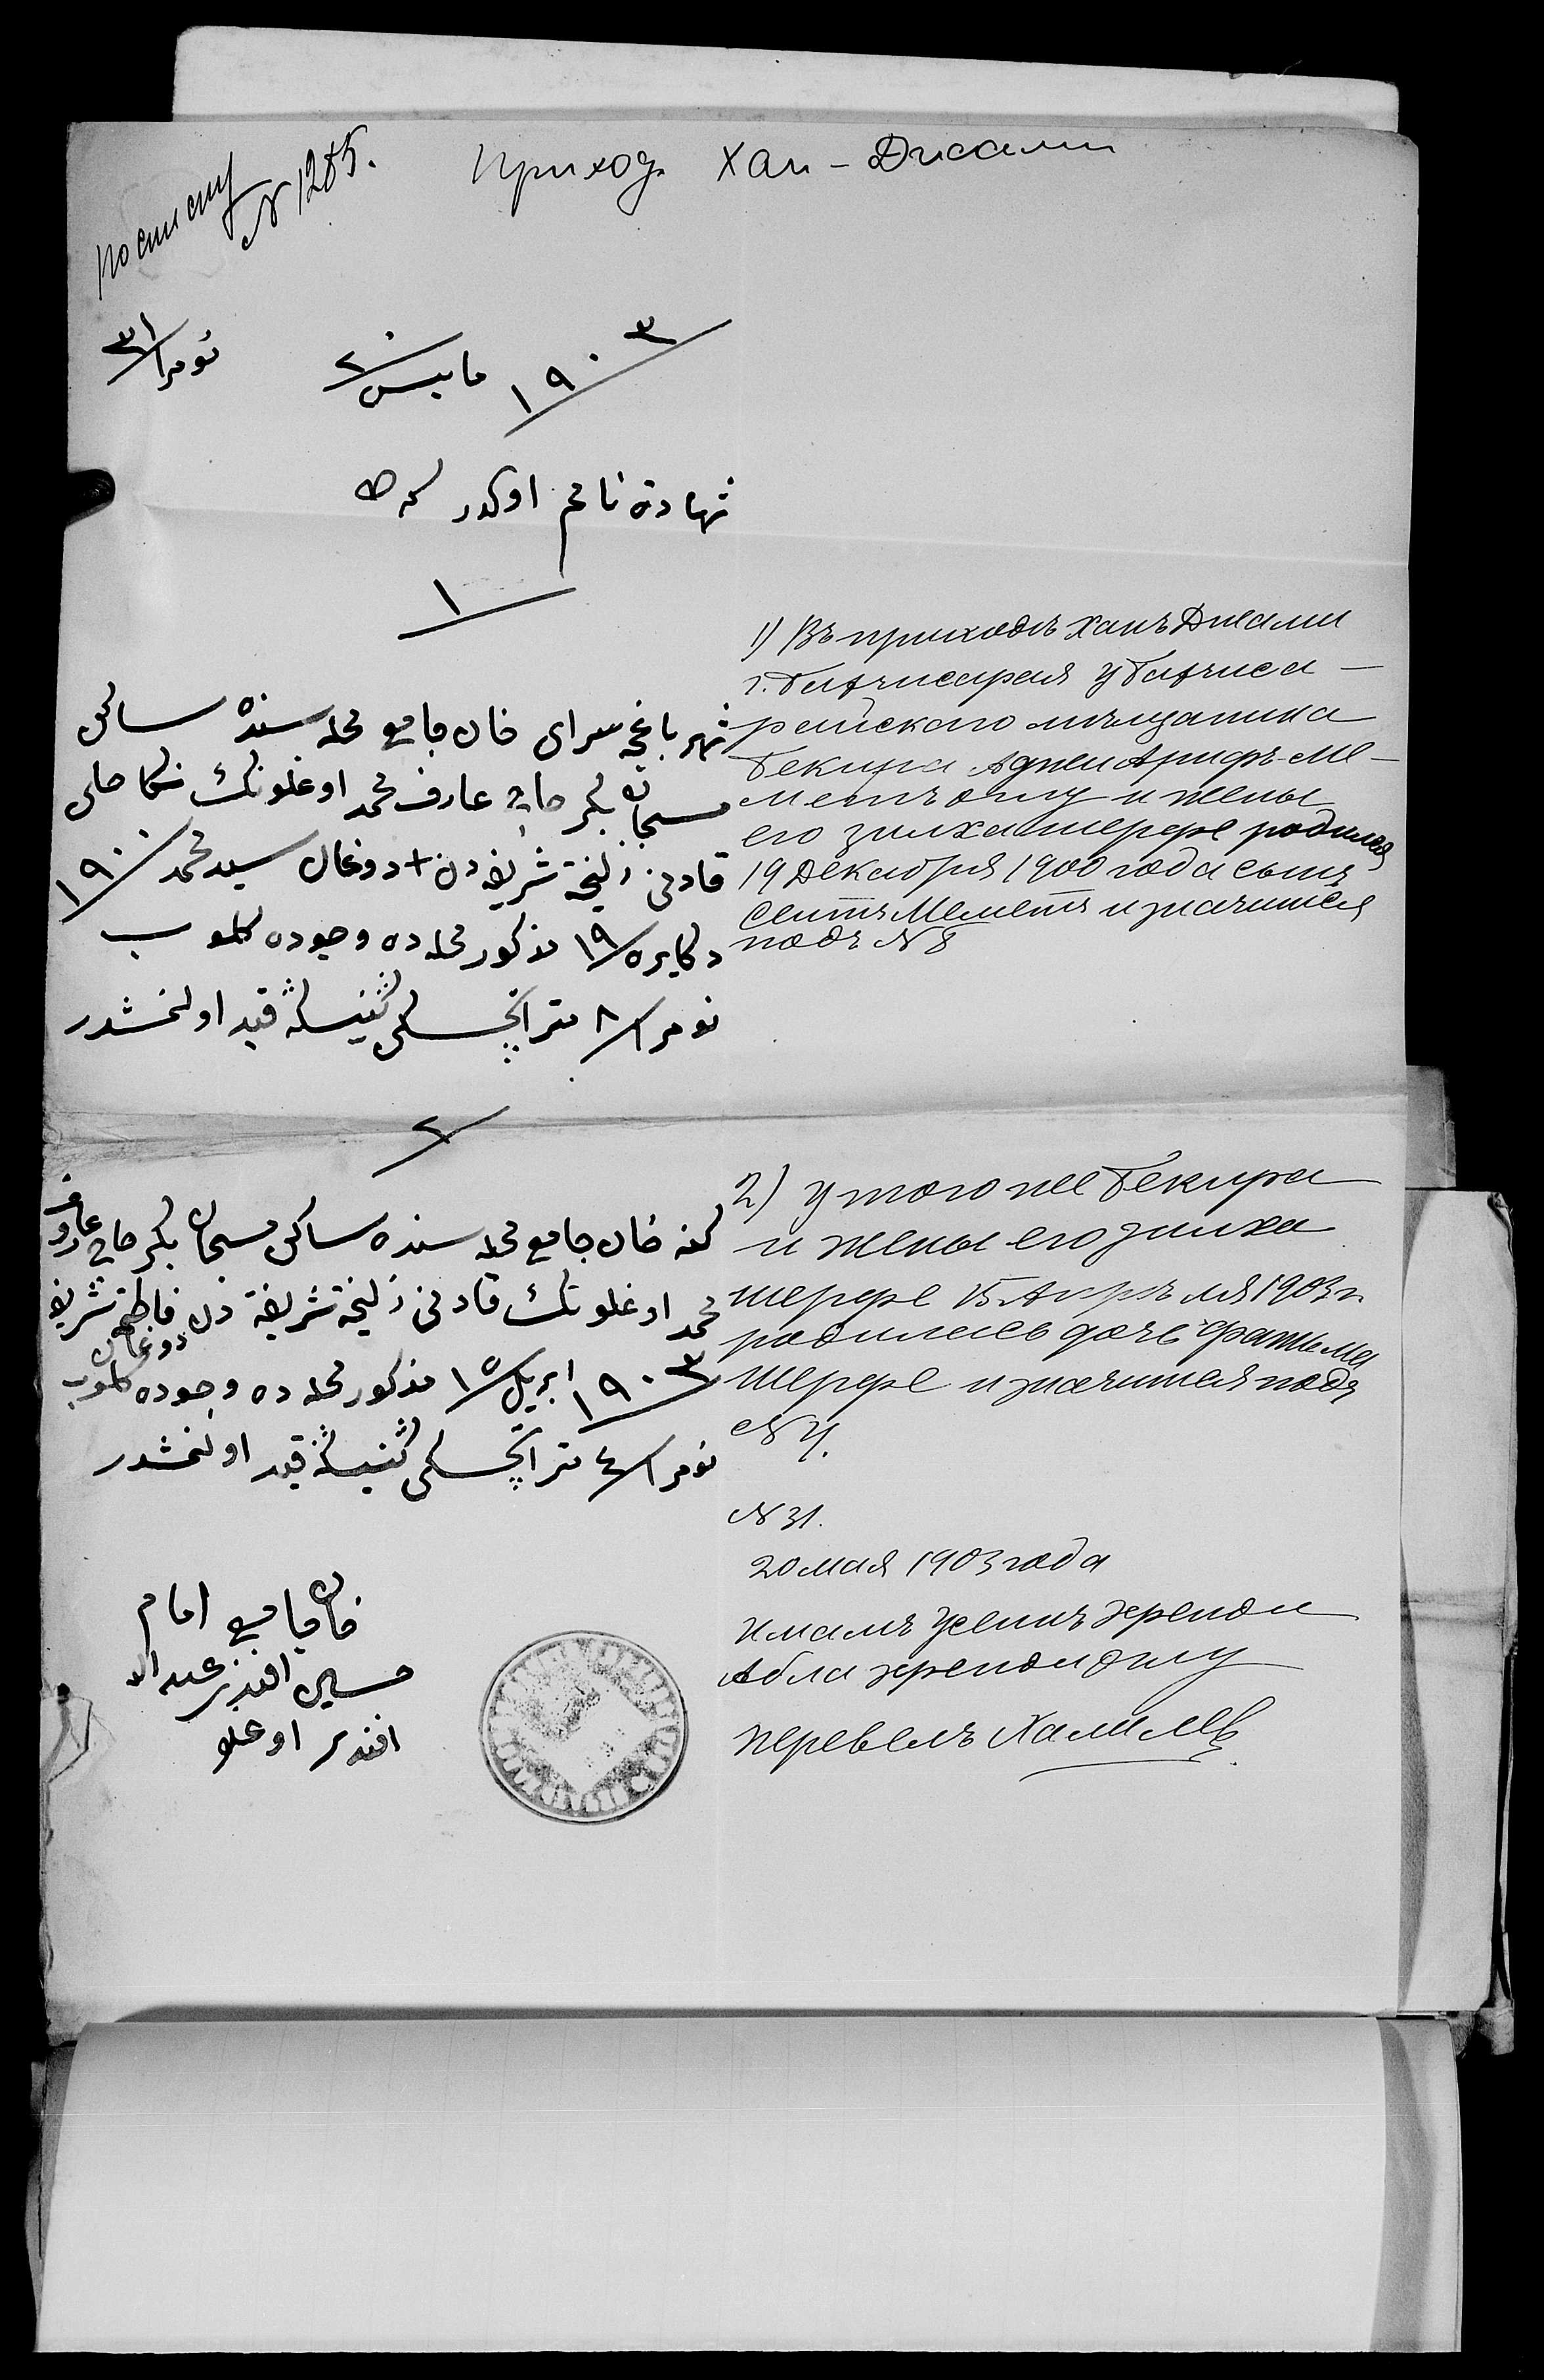 по списку
№ 1285.
Приход Хан-Джами
نومرا ٣١
١٩٠٣ مایس ٢٠
شهادة نامم اوکدر که
١
شهر باغچه سرای خان جامع محله سنده ساکن
مسچان بکر حاجی عارف محمد اوغلونك نکاحلی
قادنی زلیخة شریفه دن دوغان سید محمد ١٩٠٠
دکابره ١٩ مذکور محله ده وجوده کلوب
نومرا ٨ متراتچسکی کنیسکه قید اولنمشدر
1) Въ приходѣ Ханъ Джами
г. Бахчисарая у Бахчиса-
райскаго мѣщанина
Бекира Аджи Арифъ-Ме-
метъ оглу и жены
его Зилха шерфе родился
19 Декабря 1900 года сынъ
Сеитъ Меметъ и значится
подъ № 8
٢
کنه خان جامع محله سنده ساکن مسچان بکر حاجی عارف
محمد اوغلونك قادنی زلیخة شریفة دن دوغان فاطمه شریفه
١٩٠٣ ابریل ١٥ مذکور محله ده وجوده کلوب
نومرا ٤ متراتچسکی کنیسکه قید اولنمشدر
2) у того же Бекира
и жены его Зилха
шерфе 15 Апрѣля 1903 г.
родилась дочь Фатьма
Шерфе и значится подъ
№ 4.
№ 31.
20 мая 1903 года
Имамъ Усеинъ эфенди
Абла эфенди оглу
перевелъ Халилев
خان جامع امام
حسین افندی عبد الله
افندی اوغلو